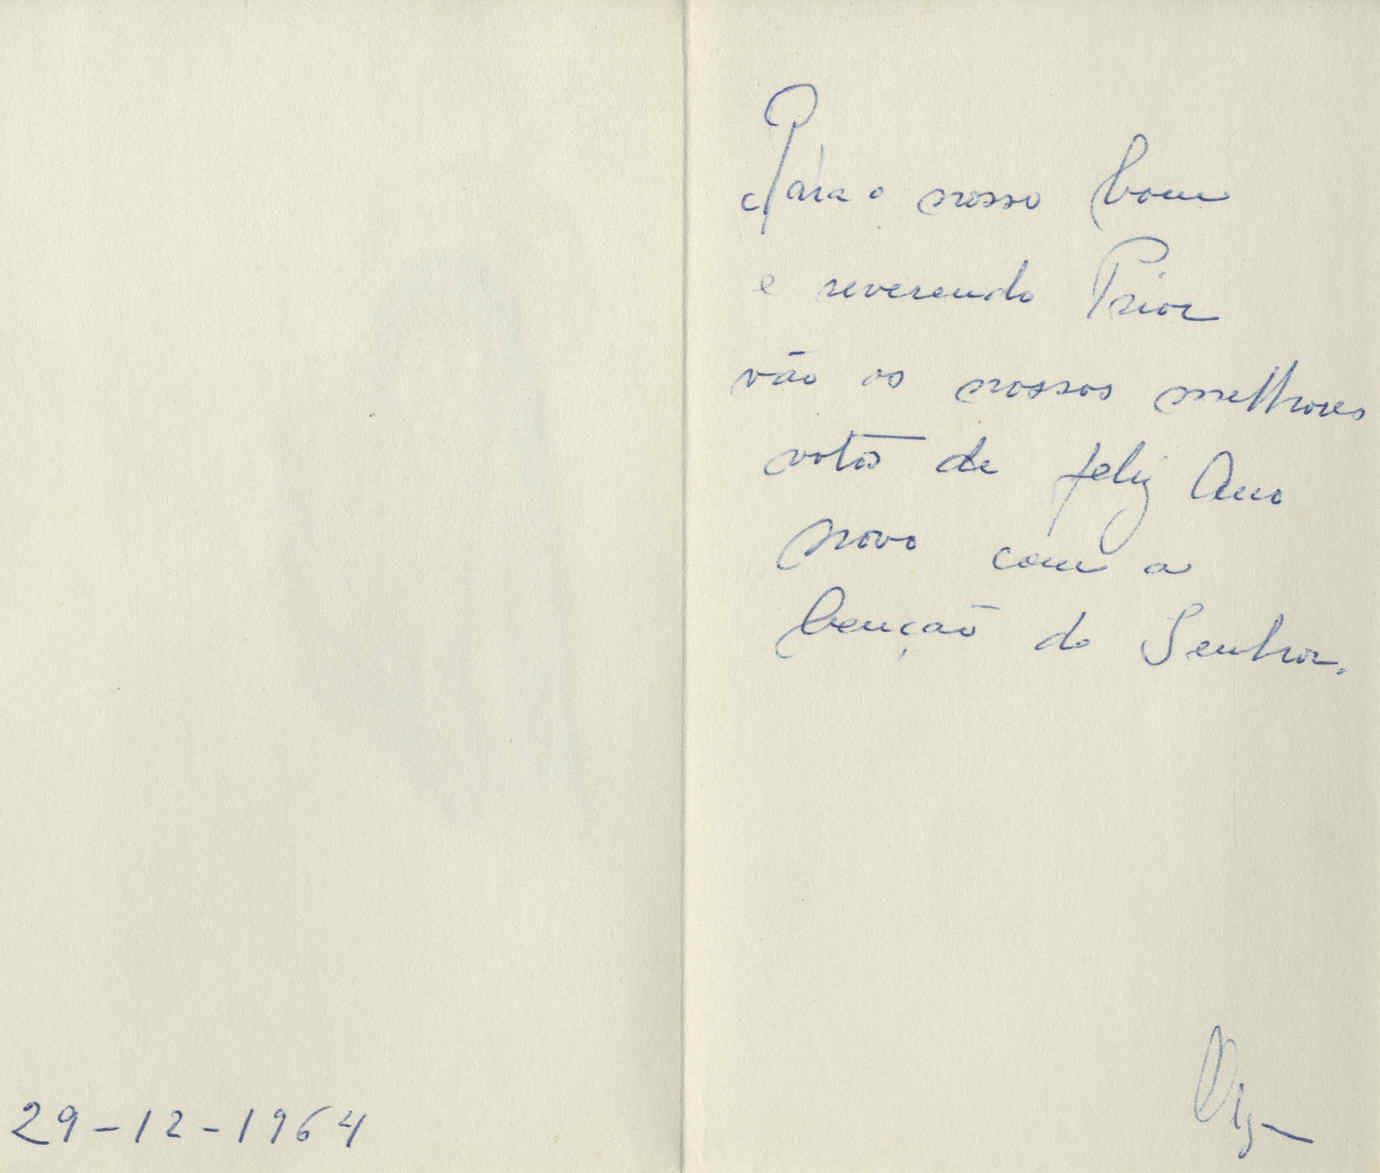 Para o nosso bom
e reverendo Prior
vão os nossos melhores
votos de feliz Ano
novo com a
bençaõ do Senhor.
29-12-1964